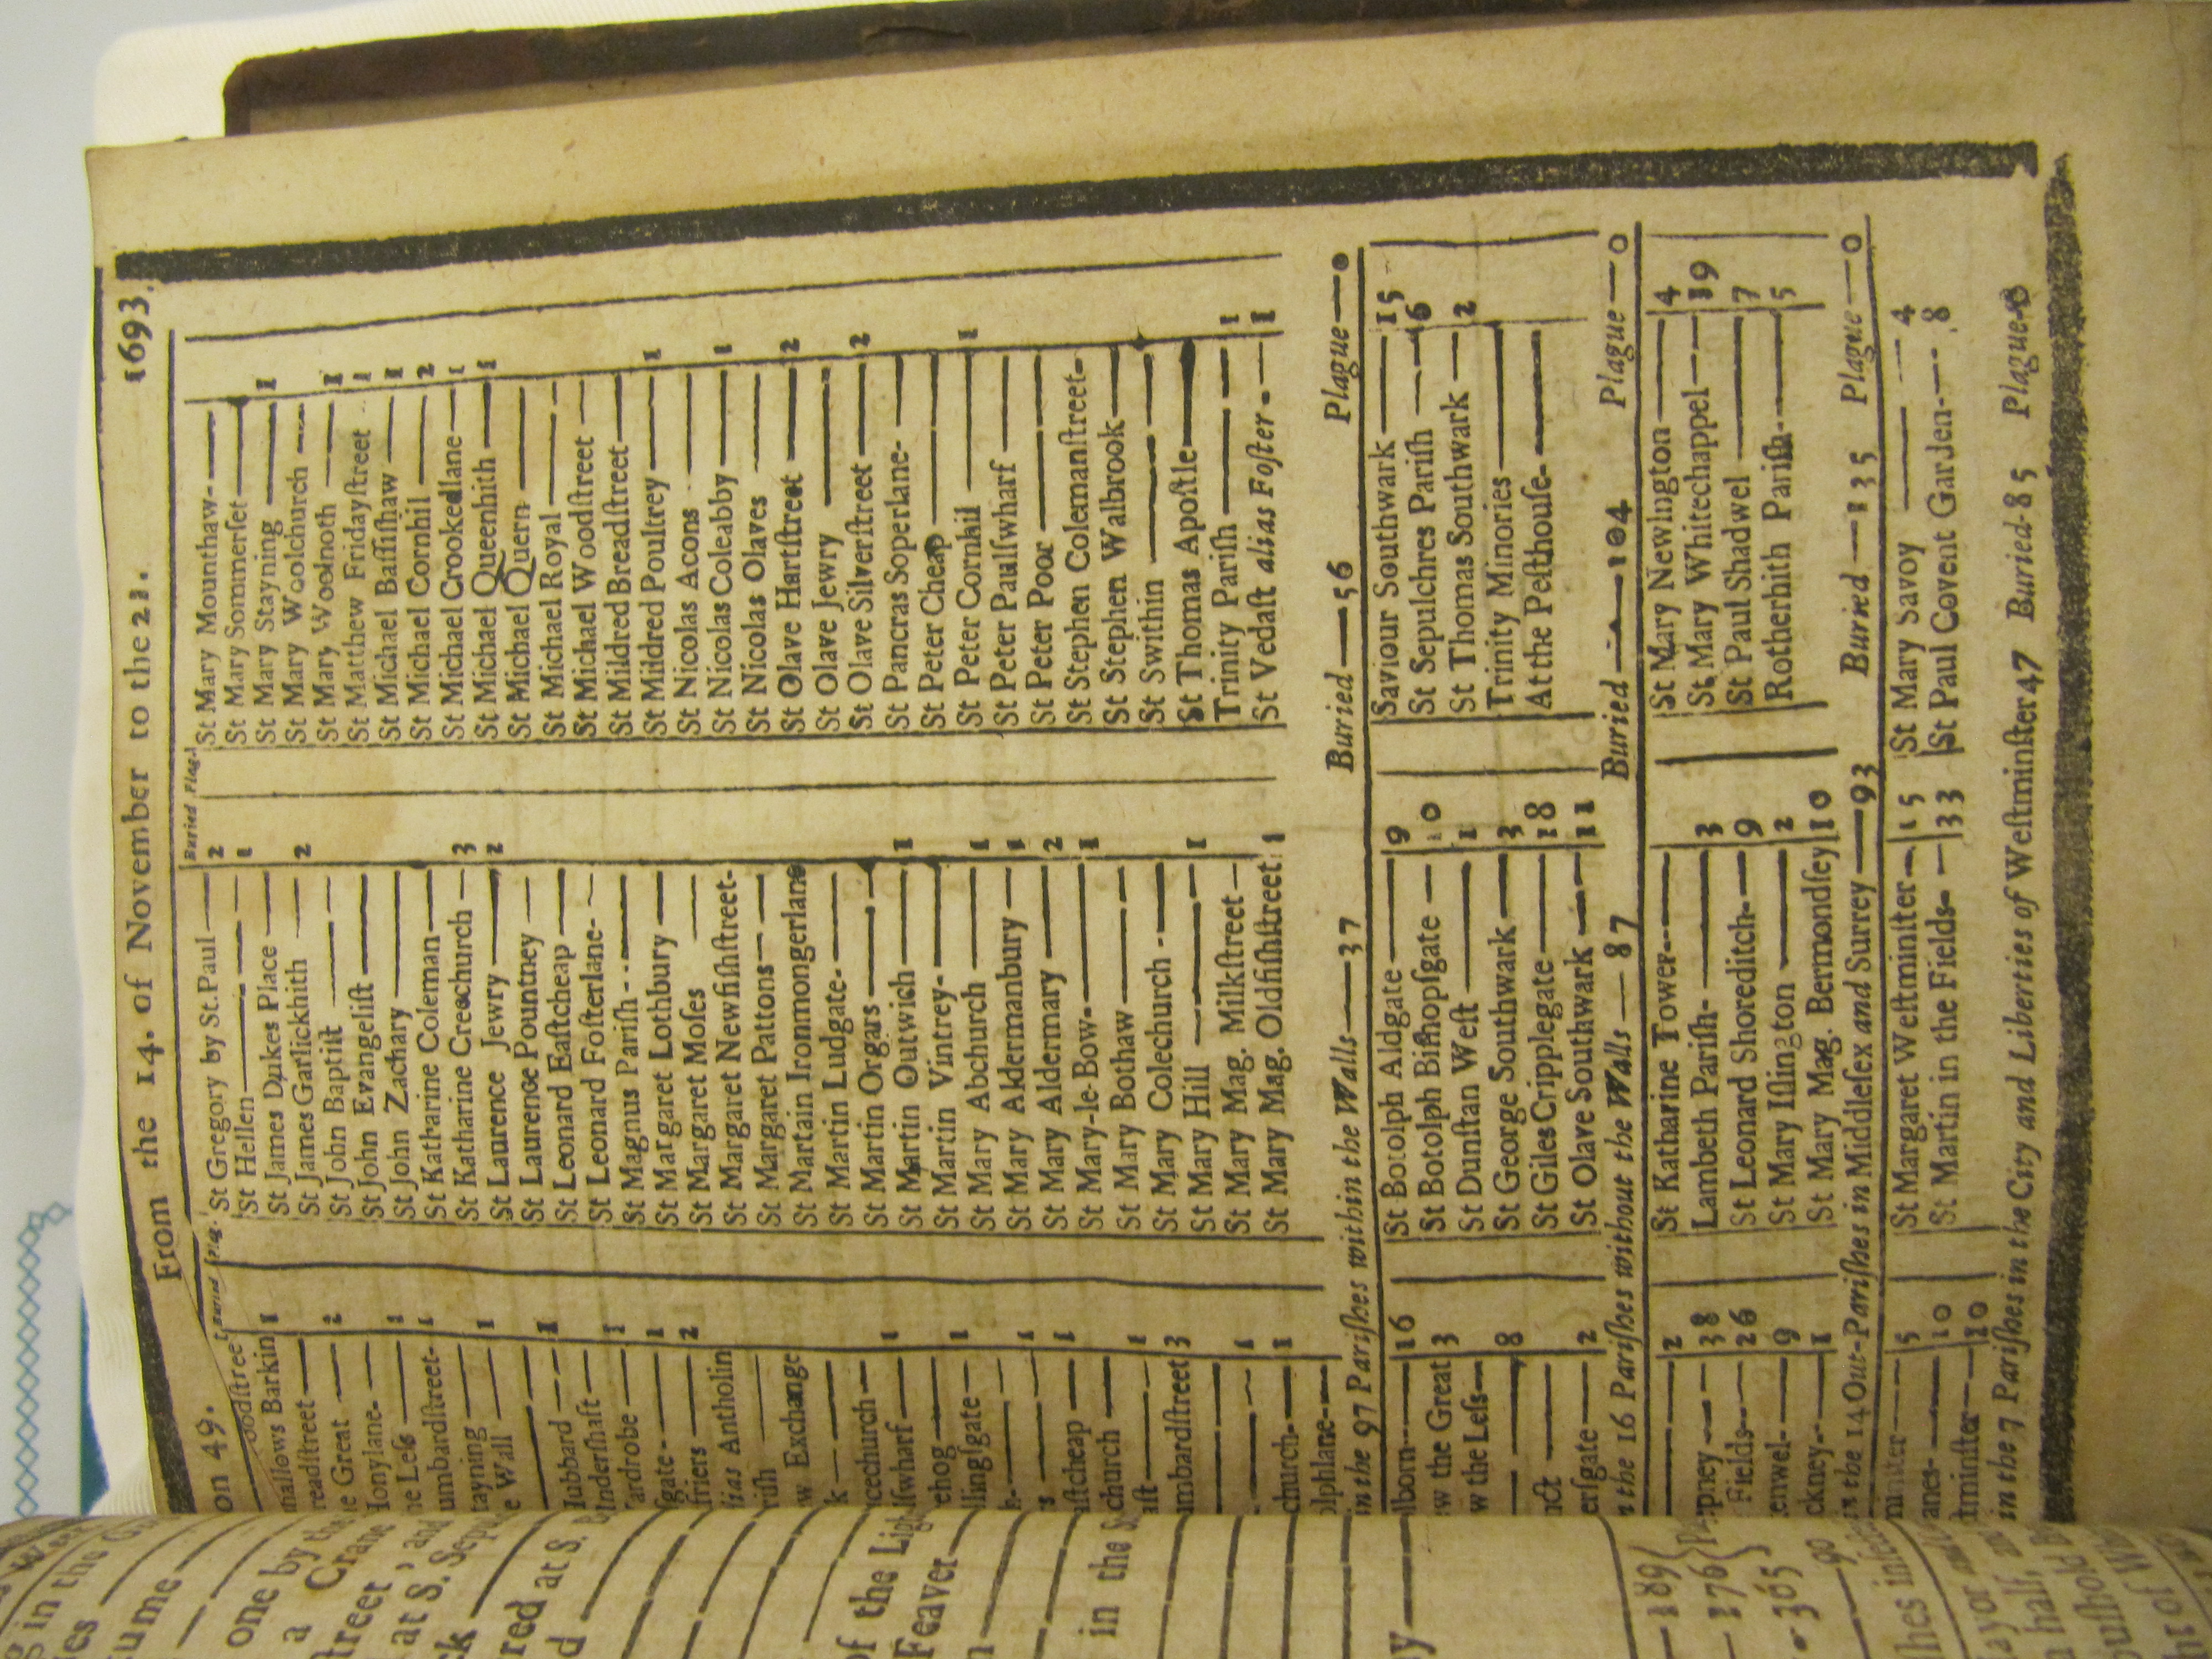 on 49. From the 14. of November to the 21. 1693.
Buried Plag.
oodſtree
hallows Barkin 1
readſtreet
e Great 2
Honylane-
he Leſs 1
umbardſtreet- 1
tayning
e Wall 1
Hubbard 1
Underſhaft
ardrobe 1
ſgate- 1
friers 2
lias Antholin
riſh
w Exchange
k
cechurch
ſwharf 1
ehog
llingſgate 1
aſtcheap 1
church
aſt 1
mbardſtreet 3
1
church- 1
olphlane-
Buried Plag.
St Gregory by St.Paul 2
St Hellen 1
St James Dukes Place
St James Garlickhith 2
St John Baptiſt
St John Evangeliſt
St John Zachary
St Katharine Coleman
St Katharine Creechurch 3
St Laurence Jewry 2
St Laurence Pountney
St Leonard Eaſtcheap
St Leonard Foſterlane-
St Magnus Pariſh
St Margaret Lothbury
St Margaret Moſes
St Margaret Newfiſhſtreet-
St Margaret Pattons
St Martain Ironmongerlane
St Martin Ludgate-
St Martin Orgars
St Martin Outwich 1
St Martin Vintrey-
St Mary Abchurch 1
St Mary Aldermanbury 1
St Mary Aldermary 2
St Mary-le-Bow- 1
St Mary Bothaw
St Mary Colechurch
St Mary Hill 1
St Mary Mag. Milkſtreet
St Mary Mag. Oldfiſhſtreet 1
St Mary Mounthaw-
St Mary Sommerſet
St Mary Stayning 1
St Mary Woolchurch
St Mary Woolnoth 1
St Matthew Fridayſtreet 1
St Michael Baſſiſhaw 1
St Michael Cornhil 2
St Michael Crookedlane 1
St Michael Queenhith 1
St Michael Quern
St Michael Royal
St Michael Woodſtreet
St Mildred Breadſtreet
St Mildred Poultrey 1
St Nicolas Acons
St Nicolas Coleabby 1
St Nicolas Olaves
St Olave Hartſtreet 2
St Olave Jewry
St Olave Silverſtreet 2
St Pancras Soperlane-
St Peter Cheap
St Peter Cornhil 1
St Peter Paulſwharf
St Peter Poor
St Stephen Colemanſtreet-
St Stephen Walbrook
St Swithin
St Thomas Apoſtle
Trinity Pariſh 1
St Vedaſt alias Foſter 1
in the 97 Pariſhes within the Walls 37 Buried 56 Plague 0
lborn 16
w the Great 3
w the Leſs
8
erſgate 2
St Botolph Aldgate 9
St Botolph Biſhopſgate 10
St Dunſtan Weſt 1
St George Southwark 3
St Giles Cripplegate 18
St Olave Southwark 11
Saviour Southwark 15
St Sepulchres Pariſh 16
St Thomas Southwark 2
Trinity Minories
At the Peſthouſe-
n the 16 Pariſhes without the Walls 87 Buried 104 Plague 0
2
pney 38
Fields 26
enwel- 9
ckney- 1
St Katharine Tower
Lambeth Pariſh- 3
St Leonard Shoreditch- 9
St Mary Iſlington 2
St Mary Mag. Bermondſey 10
St Mary Newington 14
St Mary Whitechappel 19
St Paul Shadwel 7
Rotherhith Pariſh 5
in the 14 Out-Pariſhes in Middleſex and Surrey 93 Buried 135 Plague 0
5
anes- 10
tminſter 10
St Margaret Weſtminſter 15
St Martin in the Fields- 33
St Mary Savoy 4
St Paul Covent Garden 8
in the 7 Pariſhes in the City and Liberties of Weſtminſter 47 Buried 85 Plague 0
g in the
ume
one by the
a Crane
ſtreet
at S. Sepu
red at S.
of the Ligh
Feaver
in the S
189
176
305
90